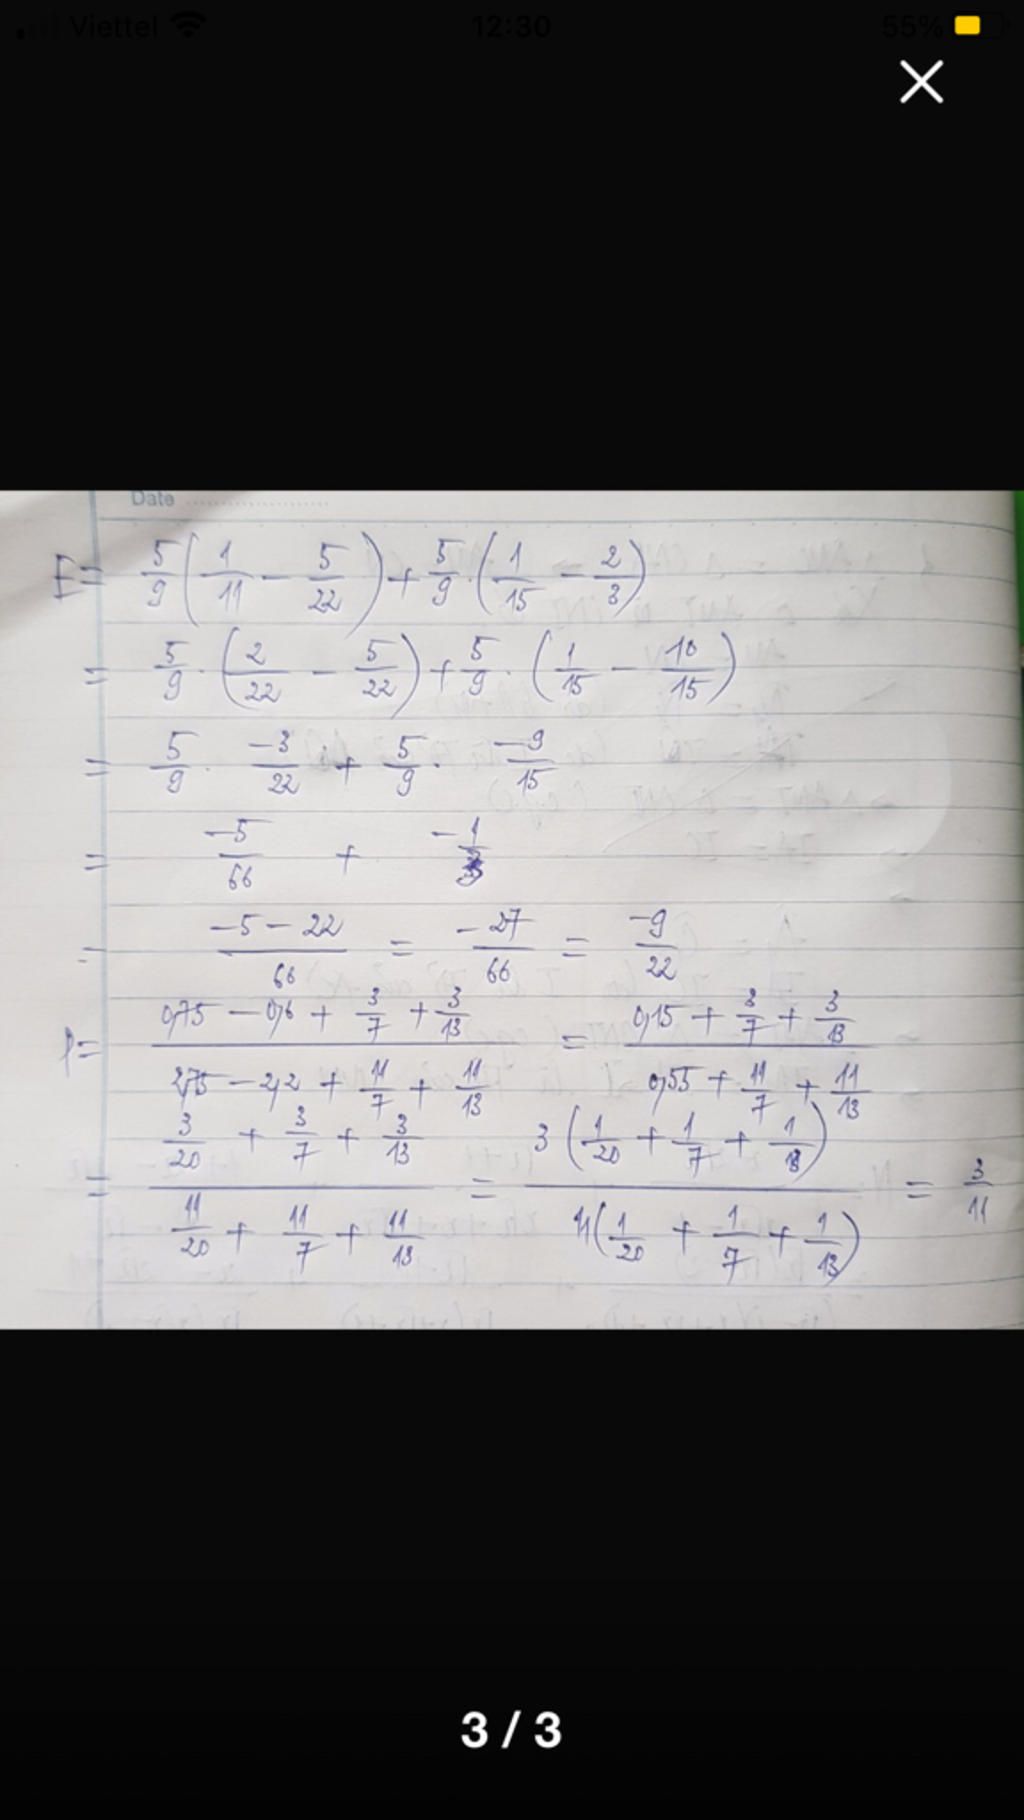 Viettel 12:30 55%
Date
E = 5/9 (1/11 - 5/22) + 5/9 . (1/15 - 2/3)
= 5/9 . (2/22 - 5/22) + 5/9 . (1/15 - 10/15)
= 5/9 . -3/22 + 5/9 . -9/15
= -5/66 + -1/3
= -5-22/66 = -27/66 = -9/22
P = 0,75 - 0,6 + 3/7 + 3/13 / 2,75 - 2,2 + 11/7 + 11/13 = 0,15 + 3/7 + 3/13 / 0,55 + 11/7 + 11/13
= 3/20 + 3/7 + 3/13 / 11/20 + 11/7 + 11/13 = 3 (1/20 + 1/7 + 1/13) / 11 (1/20 + 1/7 + 1/13) = 3/11
3 / 3